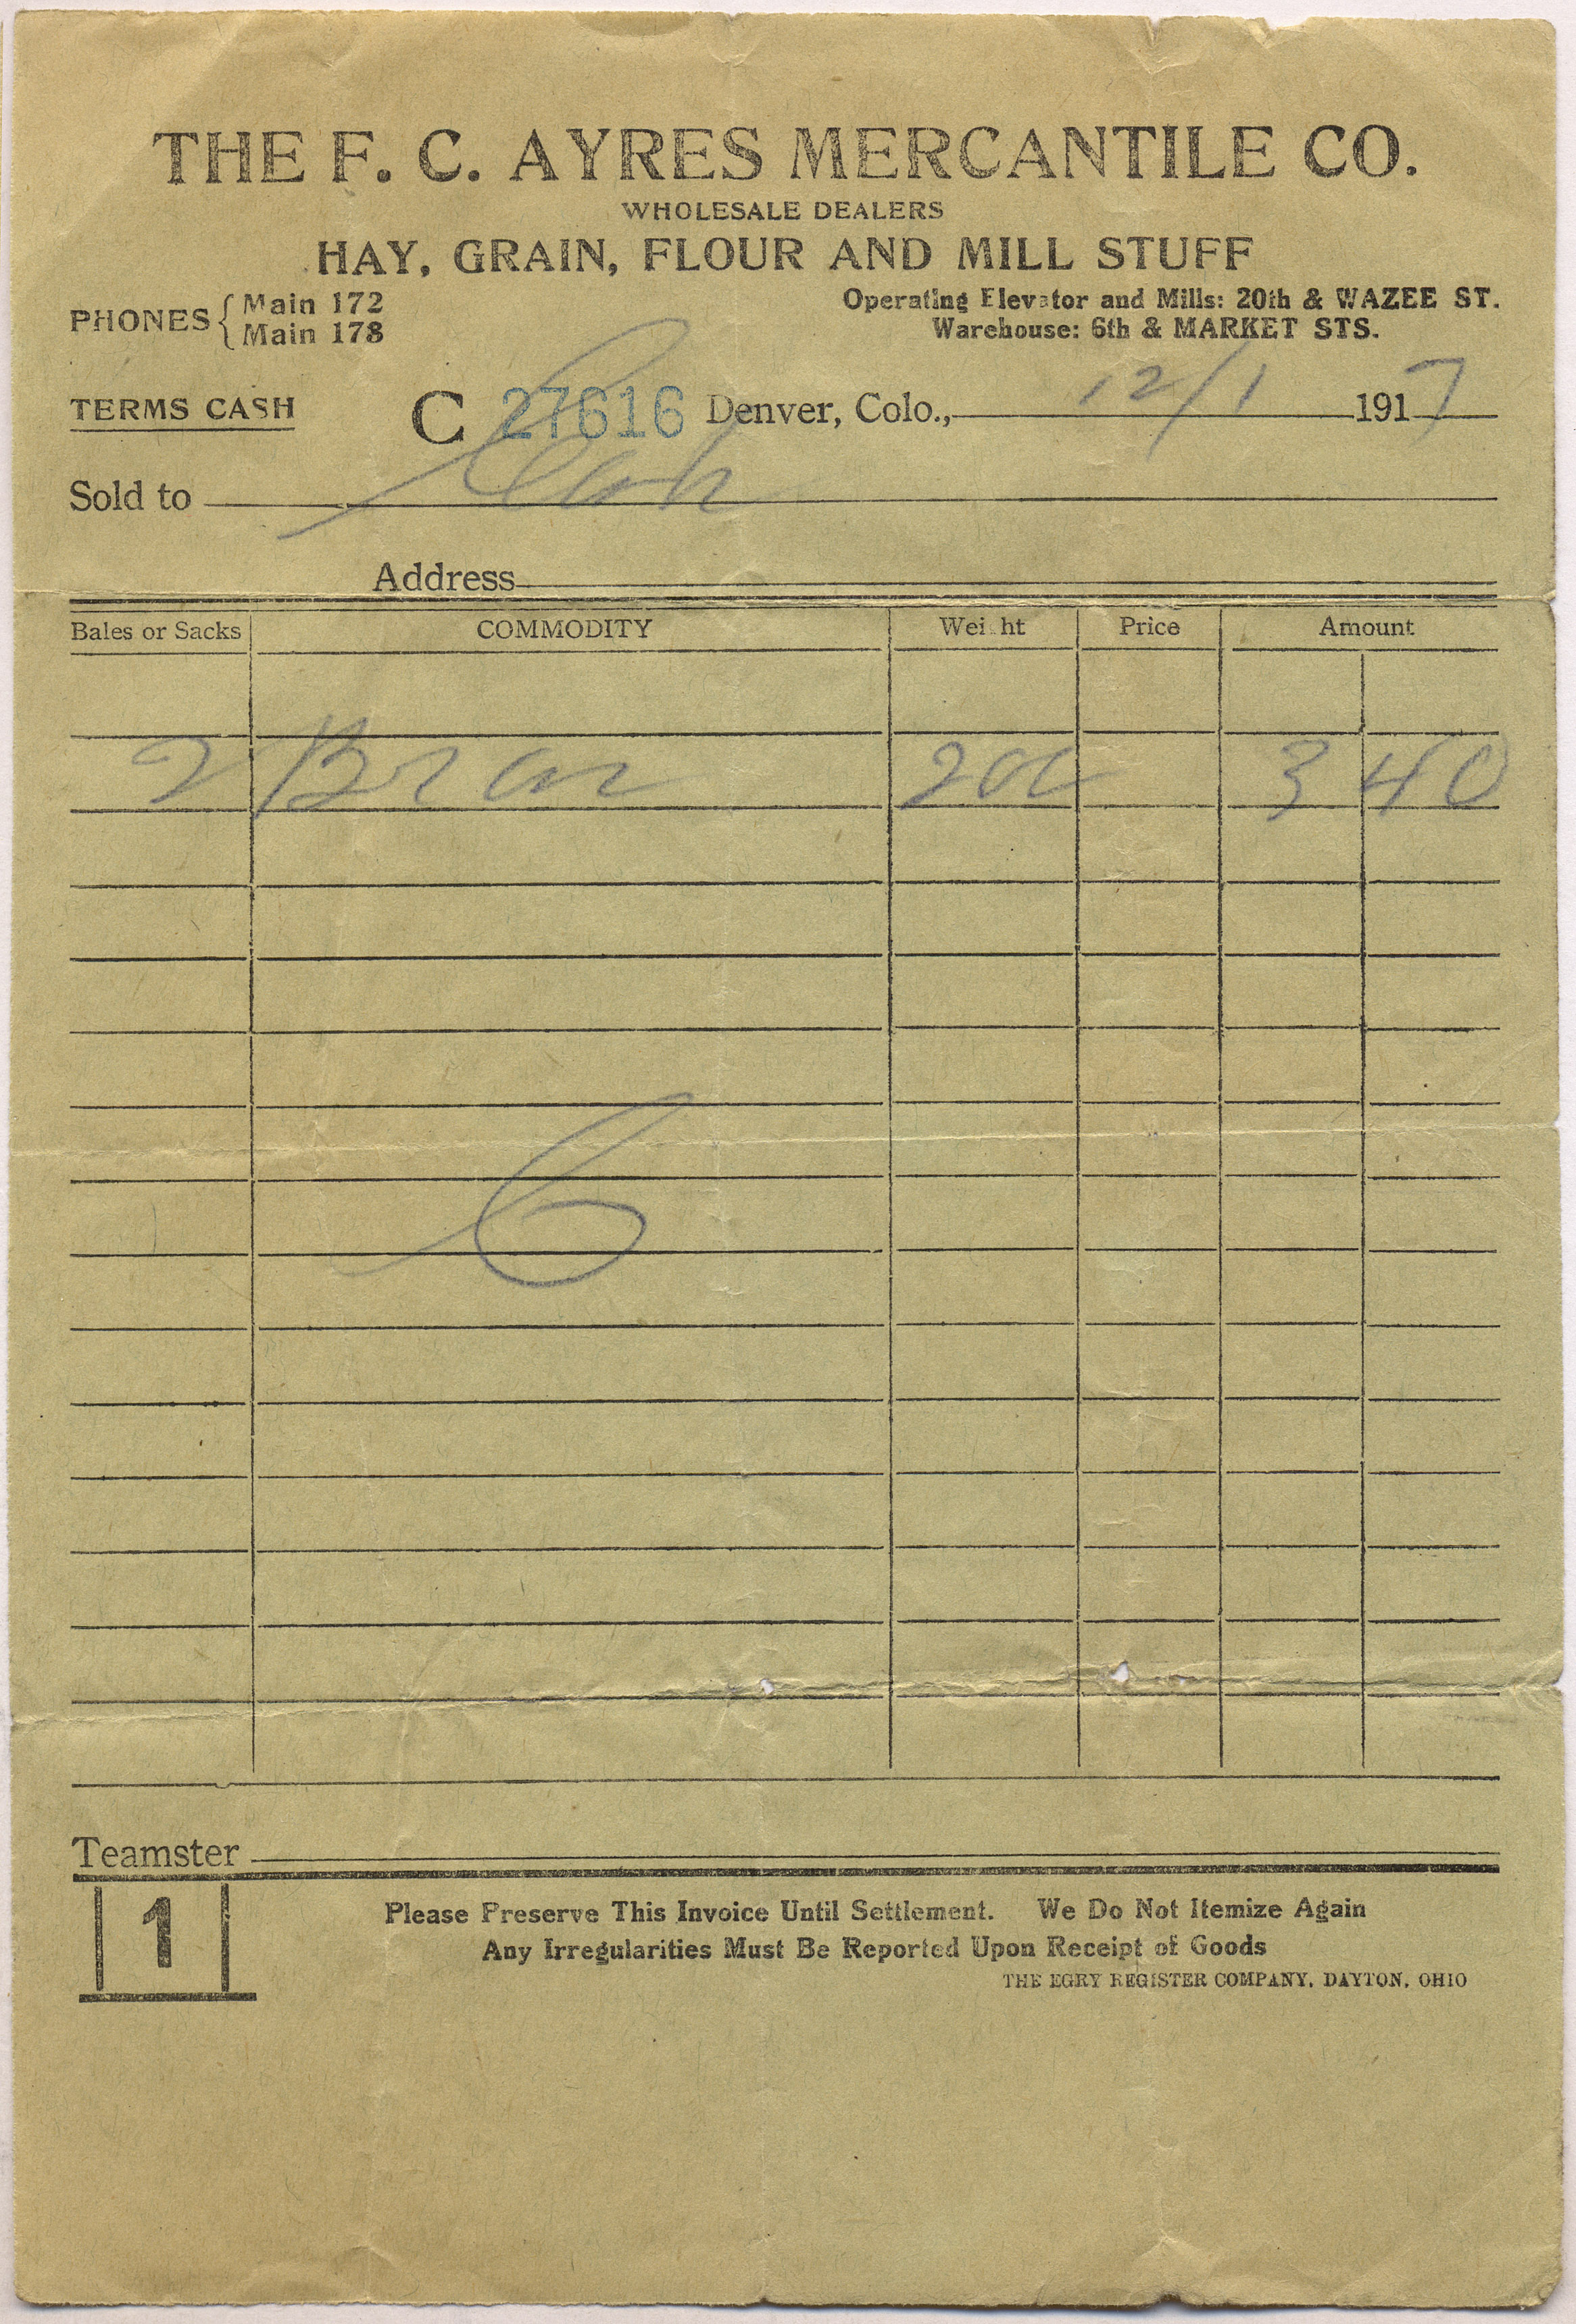 THE F. C. AYRES MERCANTILE CO.
WHOLESALE DEALERS
HAY, GRAIN, FLOUR AND MILL STUFF
PHONES { Main 172
Main 178
Operating Elevator and Mills: 20th & WAZEE ST.
Warehouse: 6th & MARKET STS.
TERMS CASH C 27616 Denver, Colo., 12/1 1917
Sold to Cash
Address
Bales or Sacks COMMODITY Weight Price Amount
2 Bran 200 3 40
6
Teamster
1
Please Preserve This Invoice Until Settlement. We Do Not Itemize Again
Any Irregularities Must Be Reported Upon Receipt of Goods
THE EGRY REGISTER COMPANY, DAYTON, OHIO